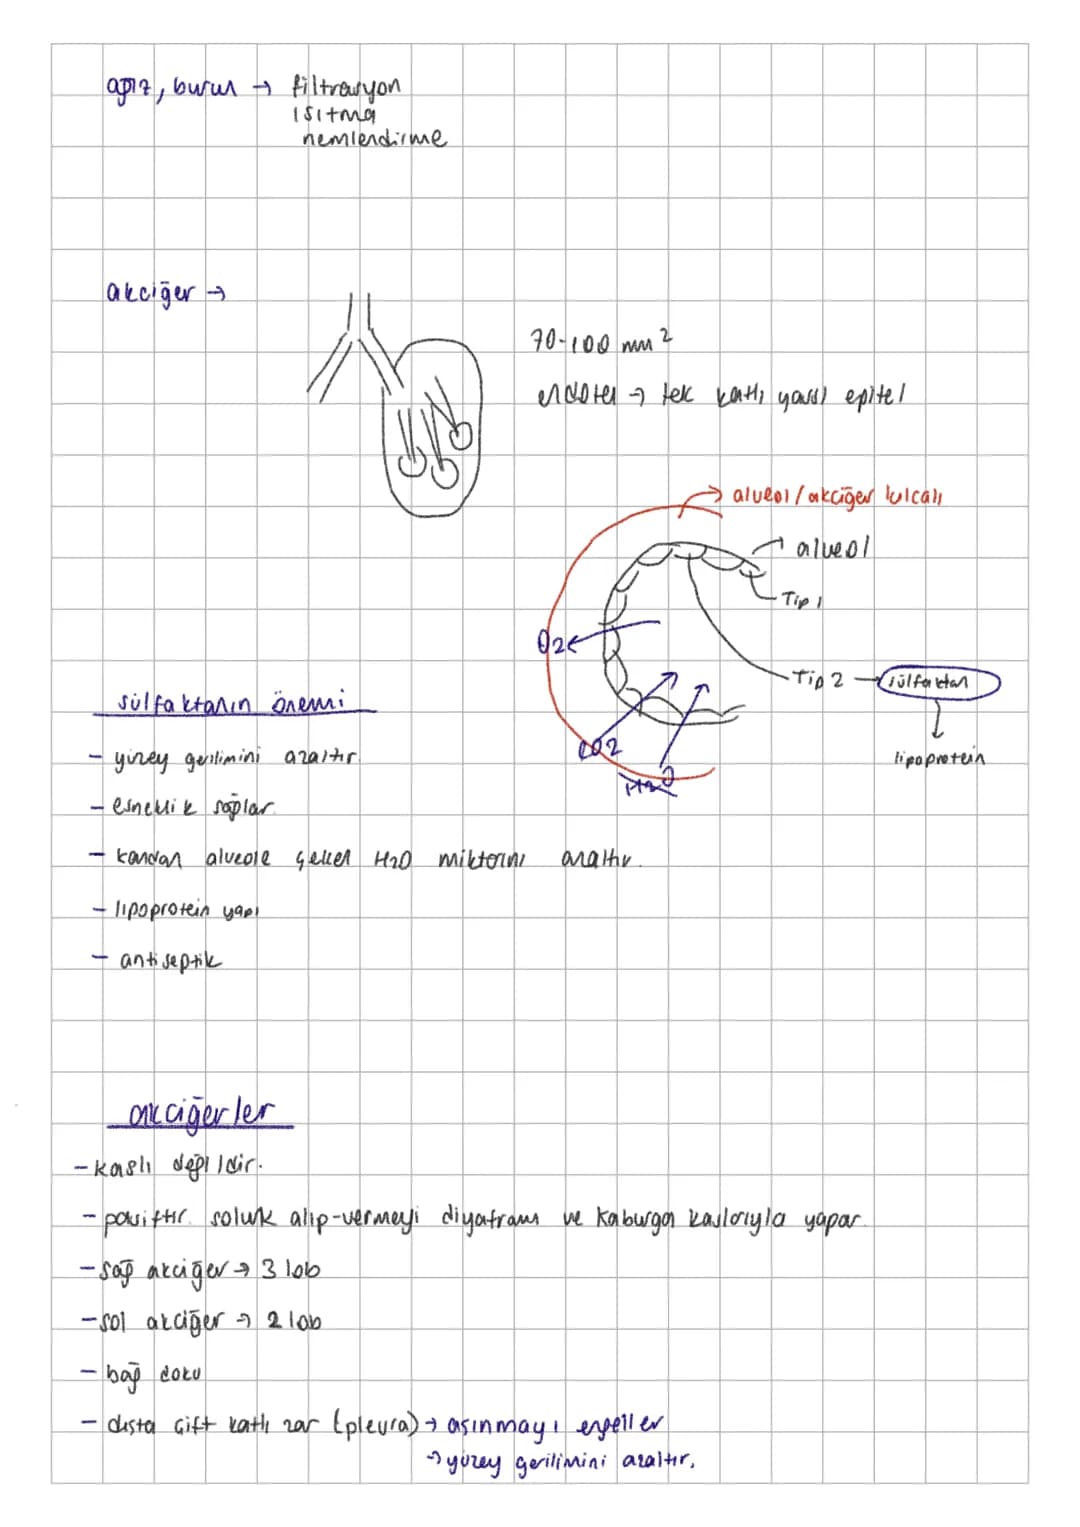 ağız, burun → filtrasyon
ısıtma
nemlendirme
akciğer →
70-100 mm²
endotel → tek katlı yassı epitel
→ alveol / akciğer kılcalı
→ alveol
Tip 1
O2
Tip 2 → sülfaktan
sülfaktanın önemi
CO2
H2O
lipoprotein
- yüzey gerilimini azaltır.
- esneklik sağlar.
- kandan alveole geçen H2O miktarını azaltır.
- lipoprotein yapı
- antiseptik
akciğerler
- kaslı değildir.
- pasiftir. soluk alıp-vermeyi diyafram ve kaburga kaslarıyla yapar.
- sağ akciğer → 3 lob
- sol akciğer → 2 lob
- bağ doku
- dışta çift katlı zar (pleura) → aşınmayı engeller
→ yüzey gerilimini azaltır.